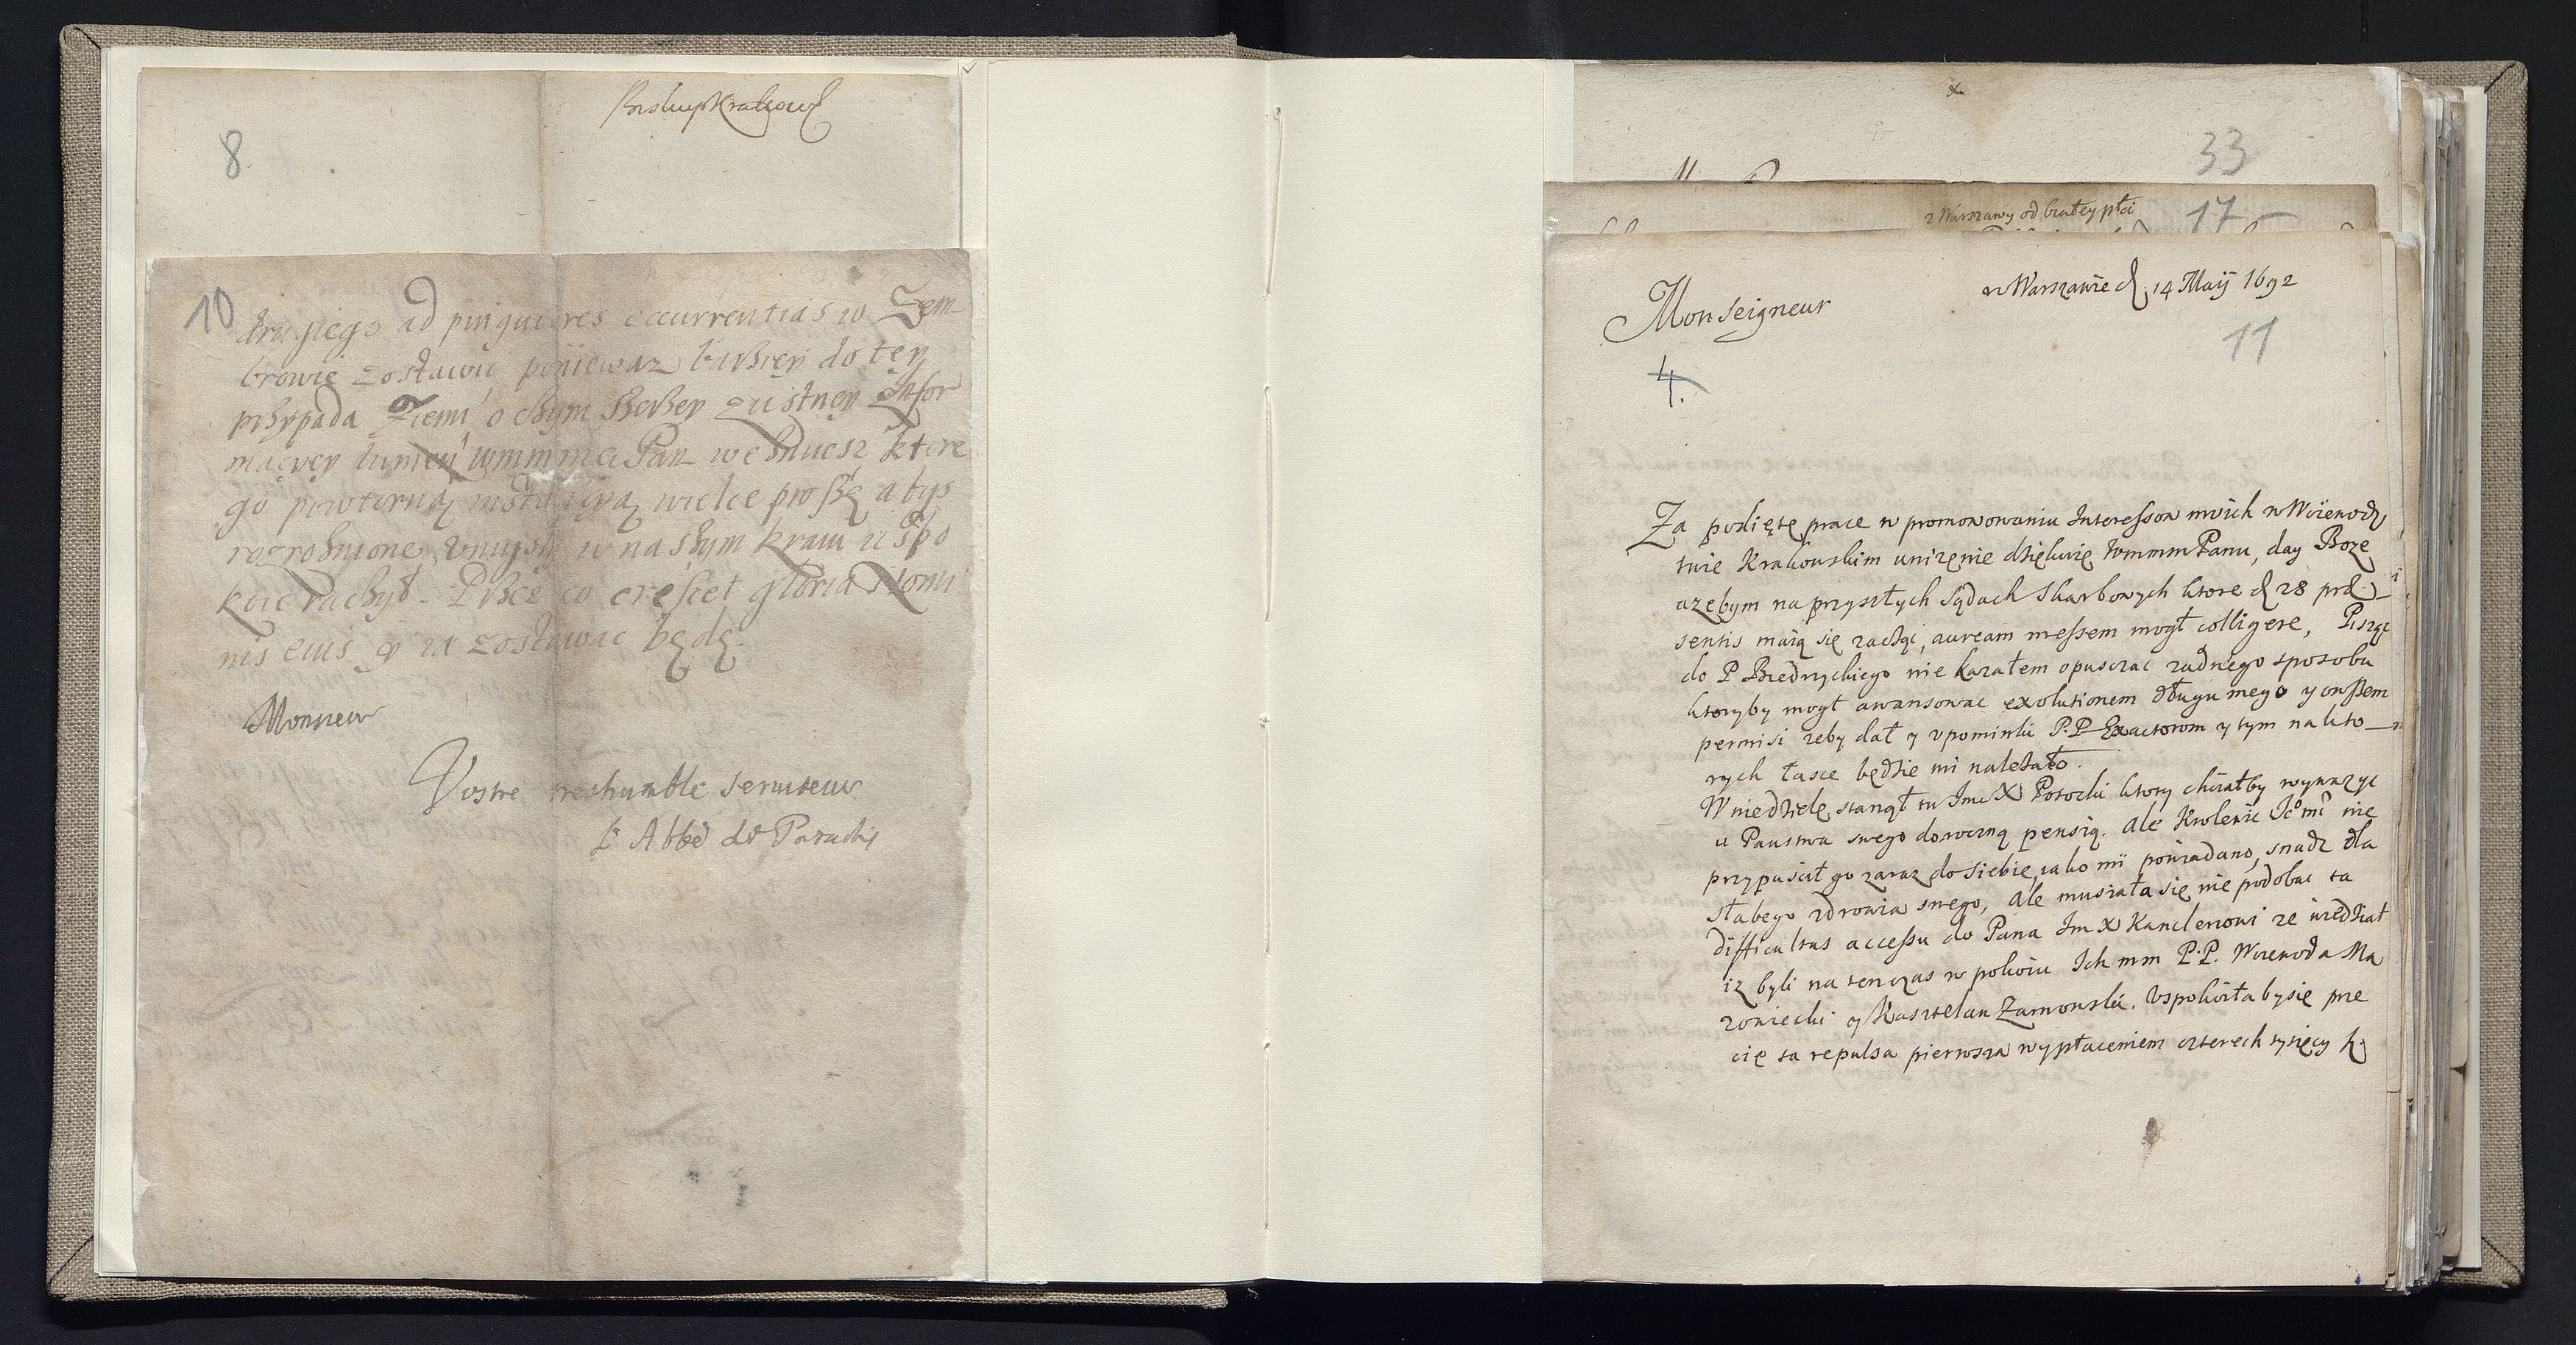 Biskup Krakows
8
10
drugiego ad pinguiores occurrentias w Zem
browie zostawic poniewaz bliżey do tey
przypada Ziemi o czym
macyey wmm Pan ktore
go powtorną wielce proszę abys
rozroznione umysły w naszym kraiu uspo
koic raczył. Przez co crescet gloria nomi
nis eius y ia zostawac będę.
Monsieur
Vostre treshumble seruiteur
L'Abbé de
33
z Warszawy od białey płci
17
w Warszawie d. 14 Maij 1692
Monseigneur
11
4.
Za podiętę prace w promowowaniu Interessow moich w Woiewodz
twie Krakowskim uniżenie dziękuię wmmm Panu, day Boze
azebym na przyszłych Sądach Skarbowych ktore d 28 præ
sentis maią się zacząc, auream messem mogł colligere, Pisząc
do P Biedrzyckiego nie kazałem opuszczac zadnego sposobu
ktoryby mogł awansowac exolutionem długu mego y owszem
permisi zeby dał y upominki P.P. Exactorom y tym na kto
rych łasce będzie mi należało.
W niedzielę stanął tu Imc X Potocki ktory chciałby wyważyc
u Panstwa swego doroczną pensią. Ale Krolewic Jc̊ mć nie
przypuscił go zaraz do siebie, iako mi powiadano, snadz dla
słabego zdrowia swego, Ale musiała się nie podobac ta
difficultas accessu do Pana Im X Kanclerzowi ze wiedział
iz byli na tenczas w pokoiu Ich mm P.P. Woiewoda Ma
zowiecki y Kasztelan Zamowski. Uspokoiła by się prze
cię ta repulsa pierwsza wypłaceniem czterech tysięcy